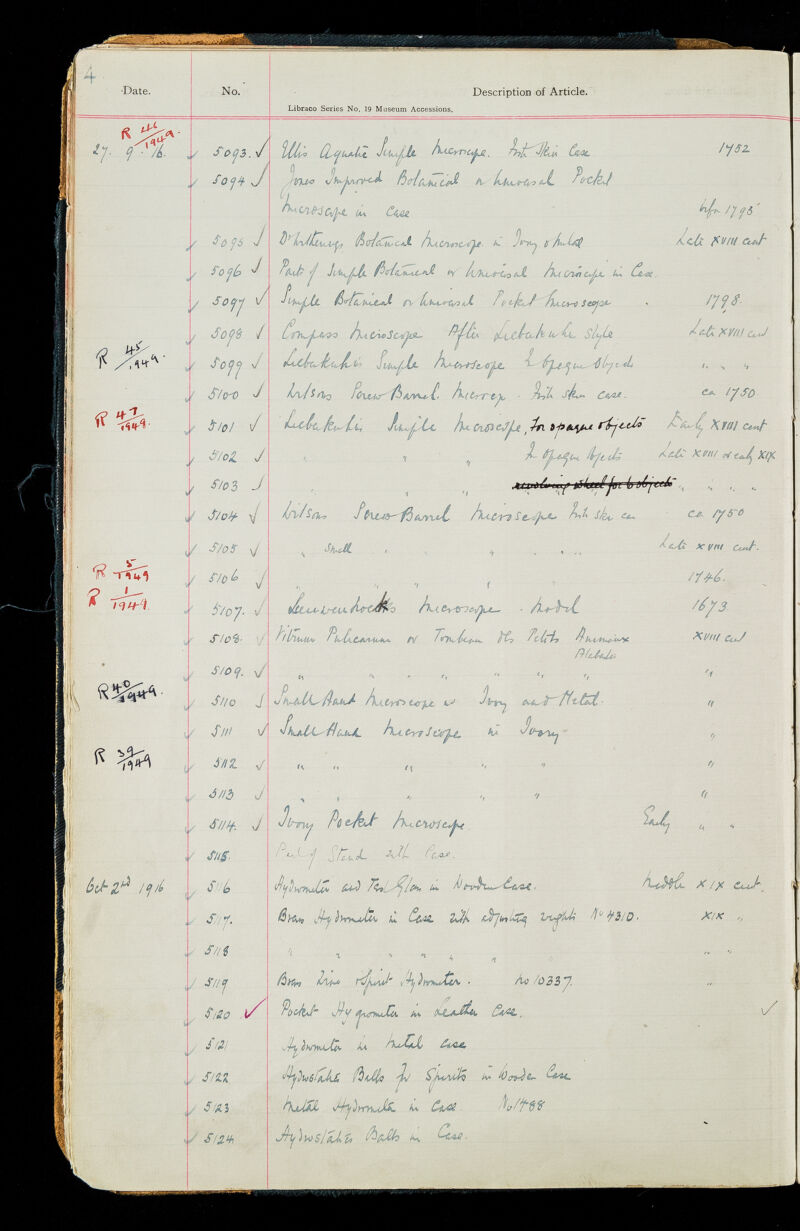 4
Date. No. Description of Article.
Libraco Series No. 19 Museum Accessions.
R 46/1949.
27. 9. 16. 5093. ✓ Ellis Aquatic Simple Microscope. Fish Skin Case 1752
5094 ✓ Jones Improved Botanical or Universal Pocket
Microscope in Case 1798
5095 ✓ Dr Witherings Botanical Microscope in Ivory & Metal Late XVIII cent
5096 ✓ Part of Simple Botanical or Universal Microscope in Case.
5097 ✓ Simple Botanical or Universal Pocket Microscope . 1798.
5098 ✓ Compass Microscope After Lieberkuhn style Late XVIII cent
R 45/1949. 5099 ✓ Lieberkuhn's Simple Microscope for Opaque Objects " " "
5100 ✓ Wilsons Screw Barrel. Microscope. Fish skin case. ca 1750
R 47/1949. 5101 ✓ Lieberkuhn's Simple Microscope, for opaque objects Early XVIII cent
5102 ✓ " " " for Opaque Objects Late XVIII or early XIX
5103 ✓ " " " revolving wheel for 6 objects " " " "
5104 ✓ Wilsons Screw Barrel Microscope Fish skin ca ca 1750
5105 ✓ " Small " " " " Late XVIII cent.
R 5/1949 5106 ✓ " " " " 1746.
R 1/1949 5107. ✓ Leeuwenhoeks Microscope. Model 1673
5108. ✓ Vitrum Pulicarium or Tombeau des Petits Animaux XVIII cent
5109. ✓ " " " " " " " "
R 40/1949. 5110 ✓ Small Hand Microscope in Ivory and Metal. "
5111 ✓ Small Hand Microscope in Ivory "
R 39/1949 5112 ✓ " " " " " "
5113 ✓ " " " " " "
5114. ✓ Ivory Pocket Microscope Early " "
5115. Part of Stand with Case.
Oct 2nd 1916 5116 Hydrometer and Test Glass in Wooden Case. Middle XIX cent.
5117. Brass Hydrometer in Case with adjusting weights No 4310. XIX "
5118 " " " " " " " "
5119 Brass Wine & Spirit Hydrometer. No 10337. "
5120 ✓ Pocket Hygrometer in Leather Case. ✓
5121 Hydrometer in Metal Case
5122 Hydrostatic Balls for Spirits in Wooden Case
5123 Metal Hydrometer in Case No 1488
5124 Hydrostatic Balls in Case.